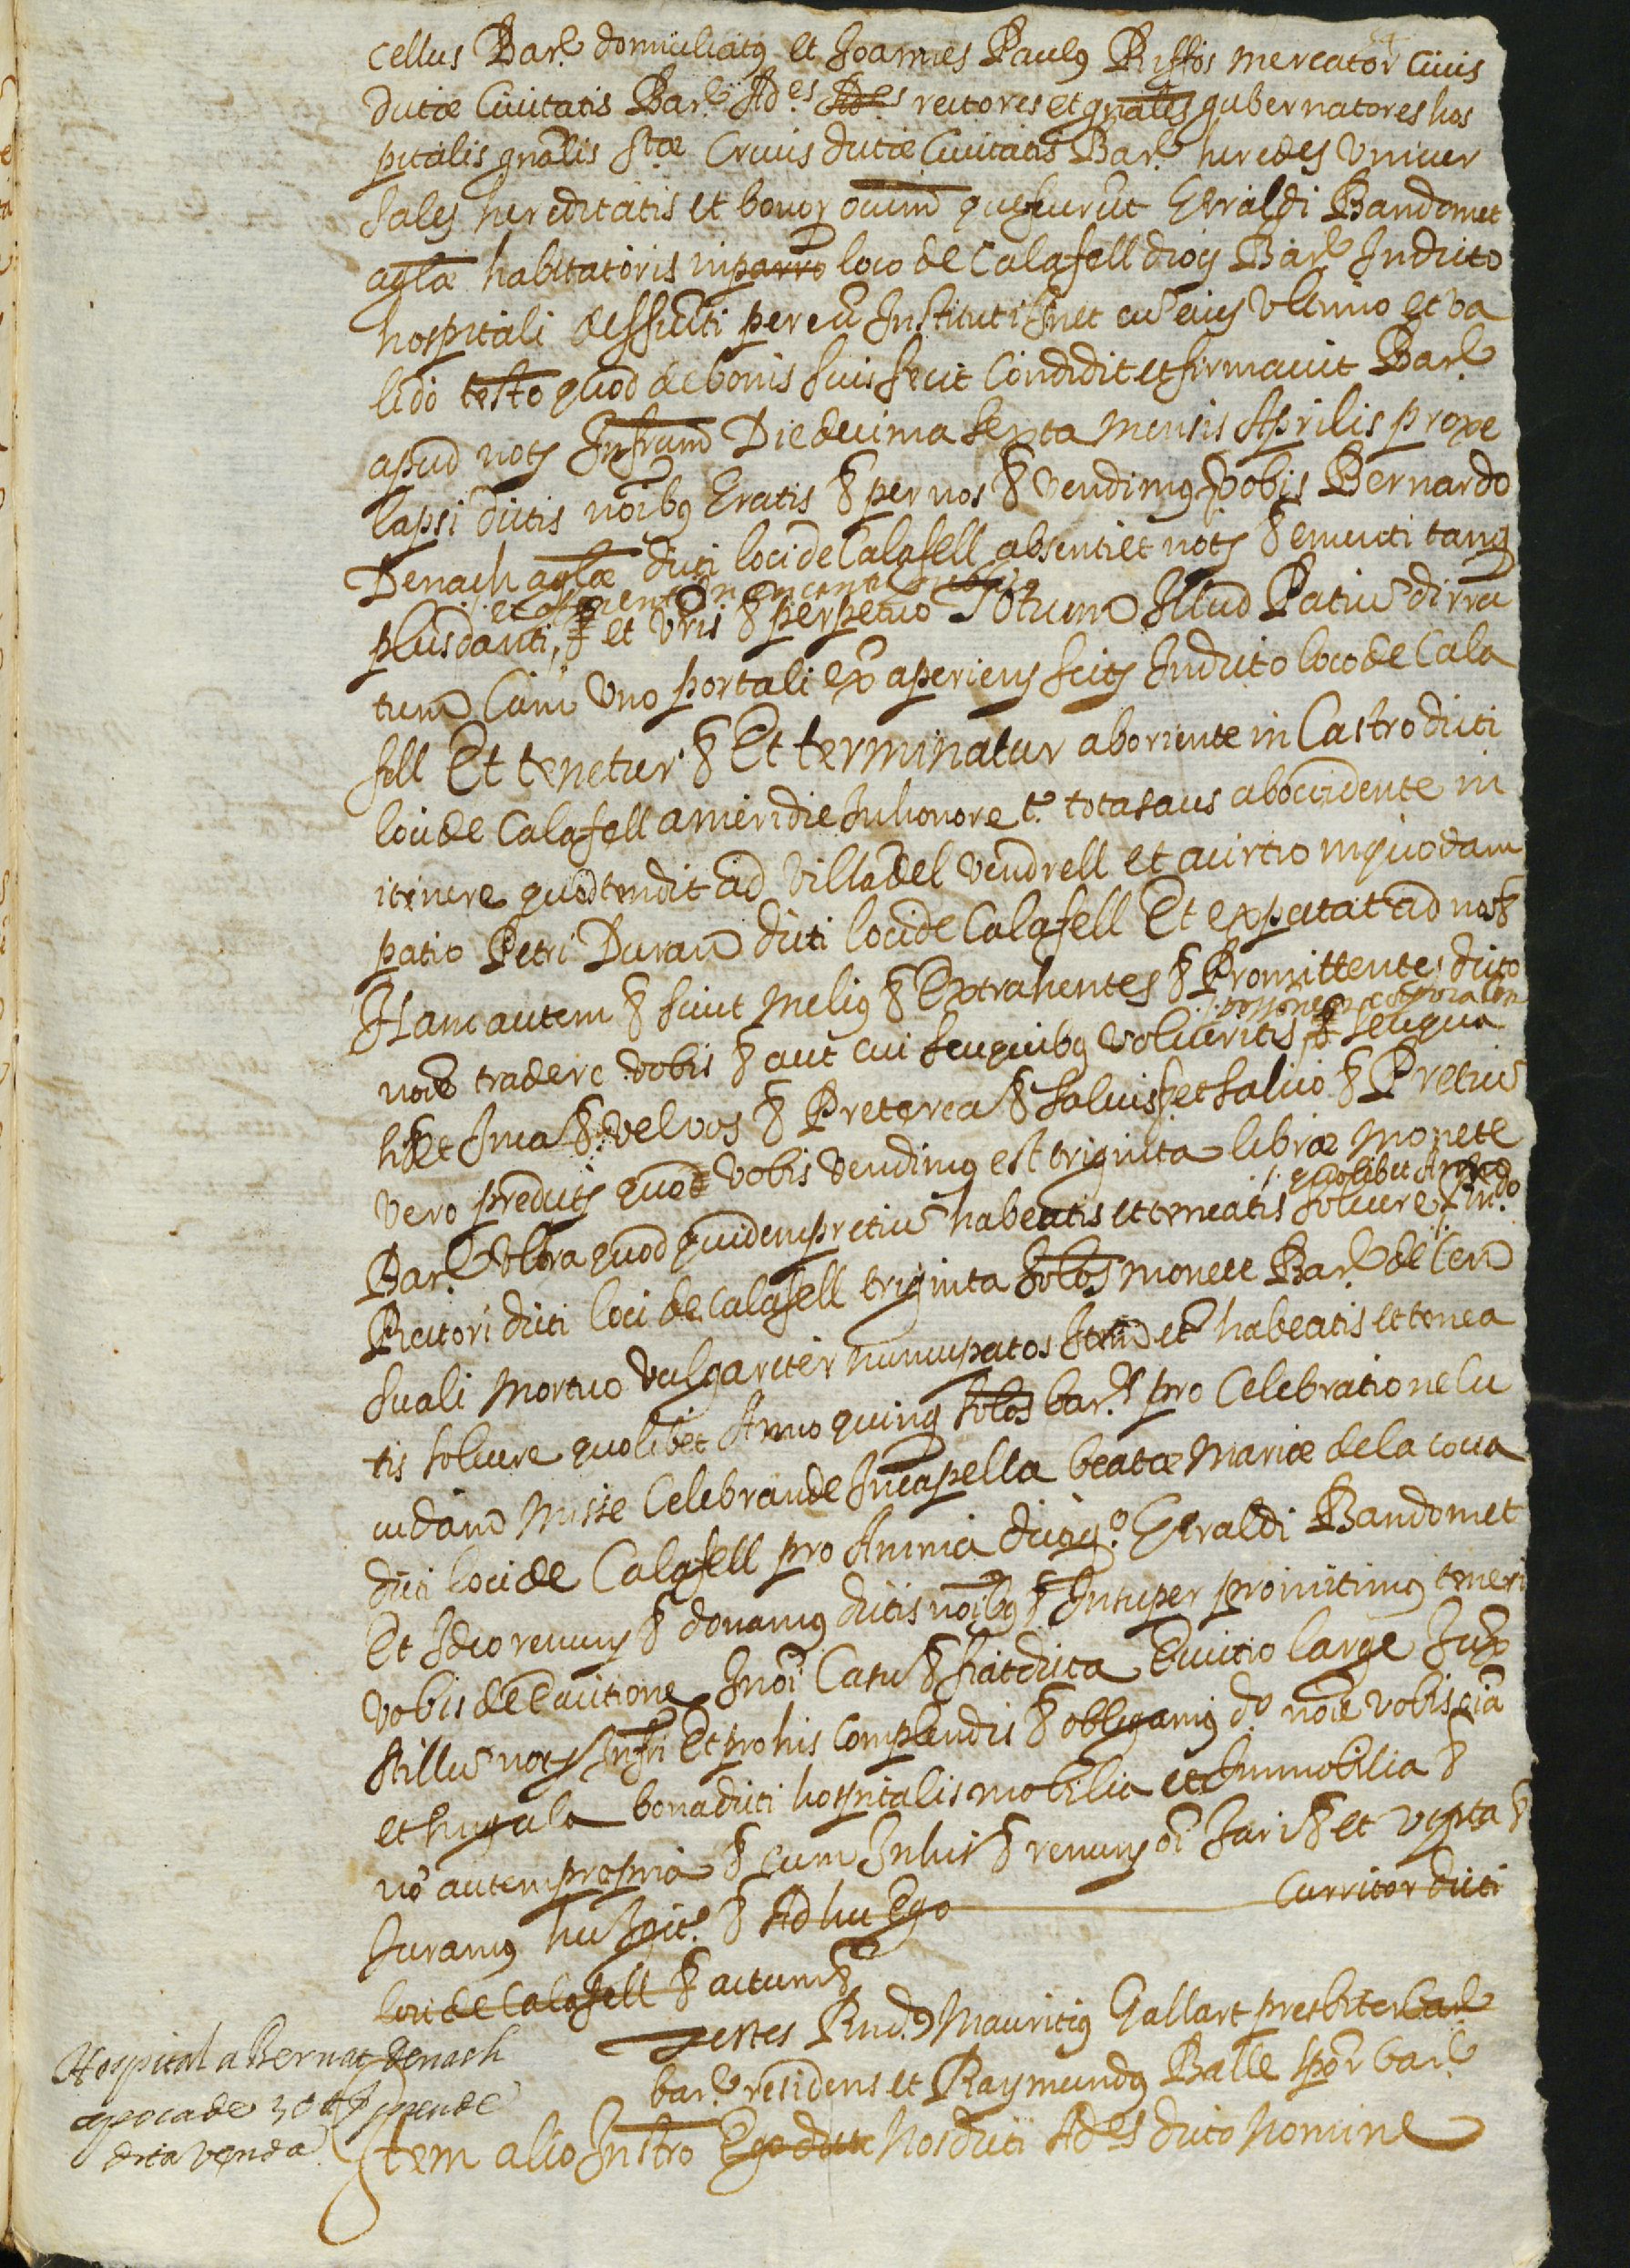 cellus Bar.e domiciliatus et Joannes Paulus Riffos mercator civis
dictæ Civitatis Bar.e Ad.es rectores et gnales gubernatores hos
pitalis gnalis S.tæ Crucis dictæ Civitatis Bar.e heredes univer
sales hereditatis et bonor omniu que fuerut Erraldi Bandomet
aglæ habitatoris in parro loco de Calafell diocis Bar.e In dicto
hospitali deffuncti per eu Instituti cu eius ultimo et va
lido testo quod de bonis suis fecit Condidit et firmavit Bar.e
apud notm Infrum Die decima sexta mensis Aprilis prope
lapsi dictis noibus Gratis & per nos & vendimus vobis Bernardo
Benach aglæ dicti loci de Calafell absenti et not & ementi tanq
et offerenti in encantu publico
plus danti, et vris & perpetuo Totum Illud Patiu dirru
tum Cum uno portali ex aperiens scit In dicto loco de Cala
fell Et tenetur & Et terminatur ab oriente in Castro dicti
loci de Calafell a meridie In honore t.e totasaus ab occidente in
itinere quod tendit ad Villa del Vendrell et a circio in quodam
patio Petri Duran dicti loci de Calafell Et expectat ad nos &
Hanc autem & sicut melius & Extrahentes & Promittentes dicto
possone corporalem
noie tradere vobis & aut cui seu quibus volueritis & seu qua
het Inea & vel vos & Preterea & salvis & et salvo & Pretiu
vero predict quod vobis vendimus est triginta libræ monete
quolibet Anno
Bar.e Ultra quod quidem pretiu habeatis et teneatis solvere R.ndo
Rectori dicti loci de Calafell triginta solos monete Bar.e de Cen
suali mortuo vulgariter nuncupatos Item et habeatis et tenea
tis solvere quolibet Anno quinq solos bar.s pro Celebratione cu
iusdam misse Celebrande In capella beatæ Mariæ de la cova
dicti loci de Calafell pro Anima dicti q.o Erraldi Bandomet
Et Ideo renuns & donamus dictis noibus & Insuper promittimus teneri
vobis de Evictione In oi Casu & fiat dicta Evictio large Jux
stillu not Infri Et pro his complendis & obligamus d.o noie vobis oia
et singula bona dicti hospitalis mobilia et Immobilia &
no autem propria & Cum In his & renuns oi Juri & et virta &
Juramus hu Igit.r & Ad huc Ego Curritor dicti
loci de Calafell & actum &
Testes R.nd.us Mauritius Gallart presbiter bar.e
bar.e residens et Raymundus Batlle spor bar.e
Hospital a Bernat Benach
apoca de 30 ll preu de
dita venda
Item alio Instro Ego dicte Nos dicti Ad.es dicto nomine